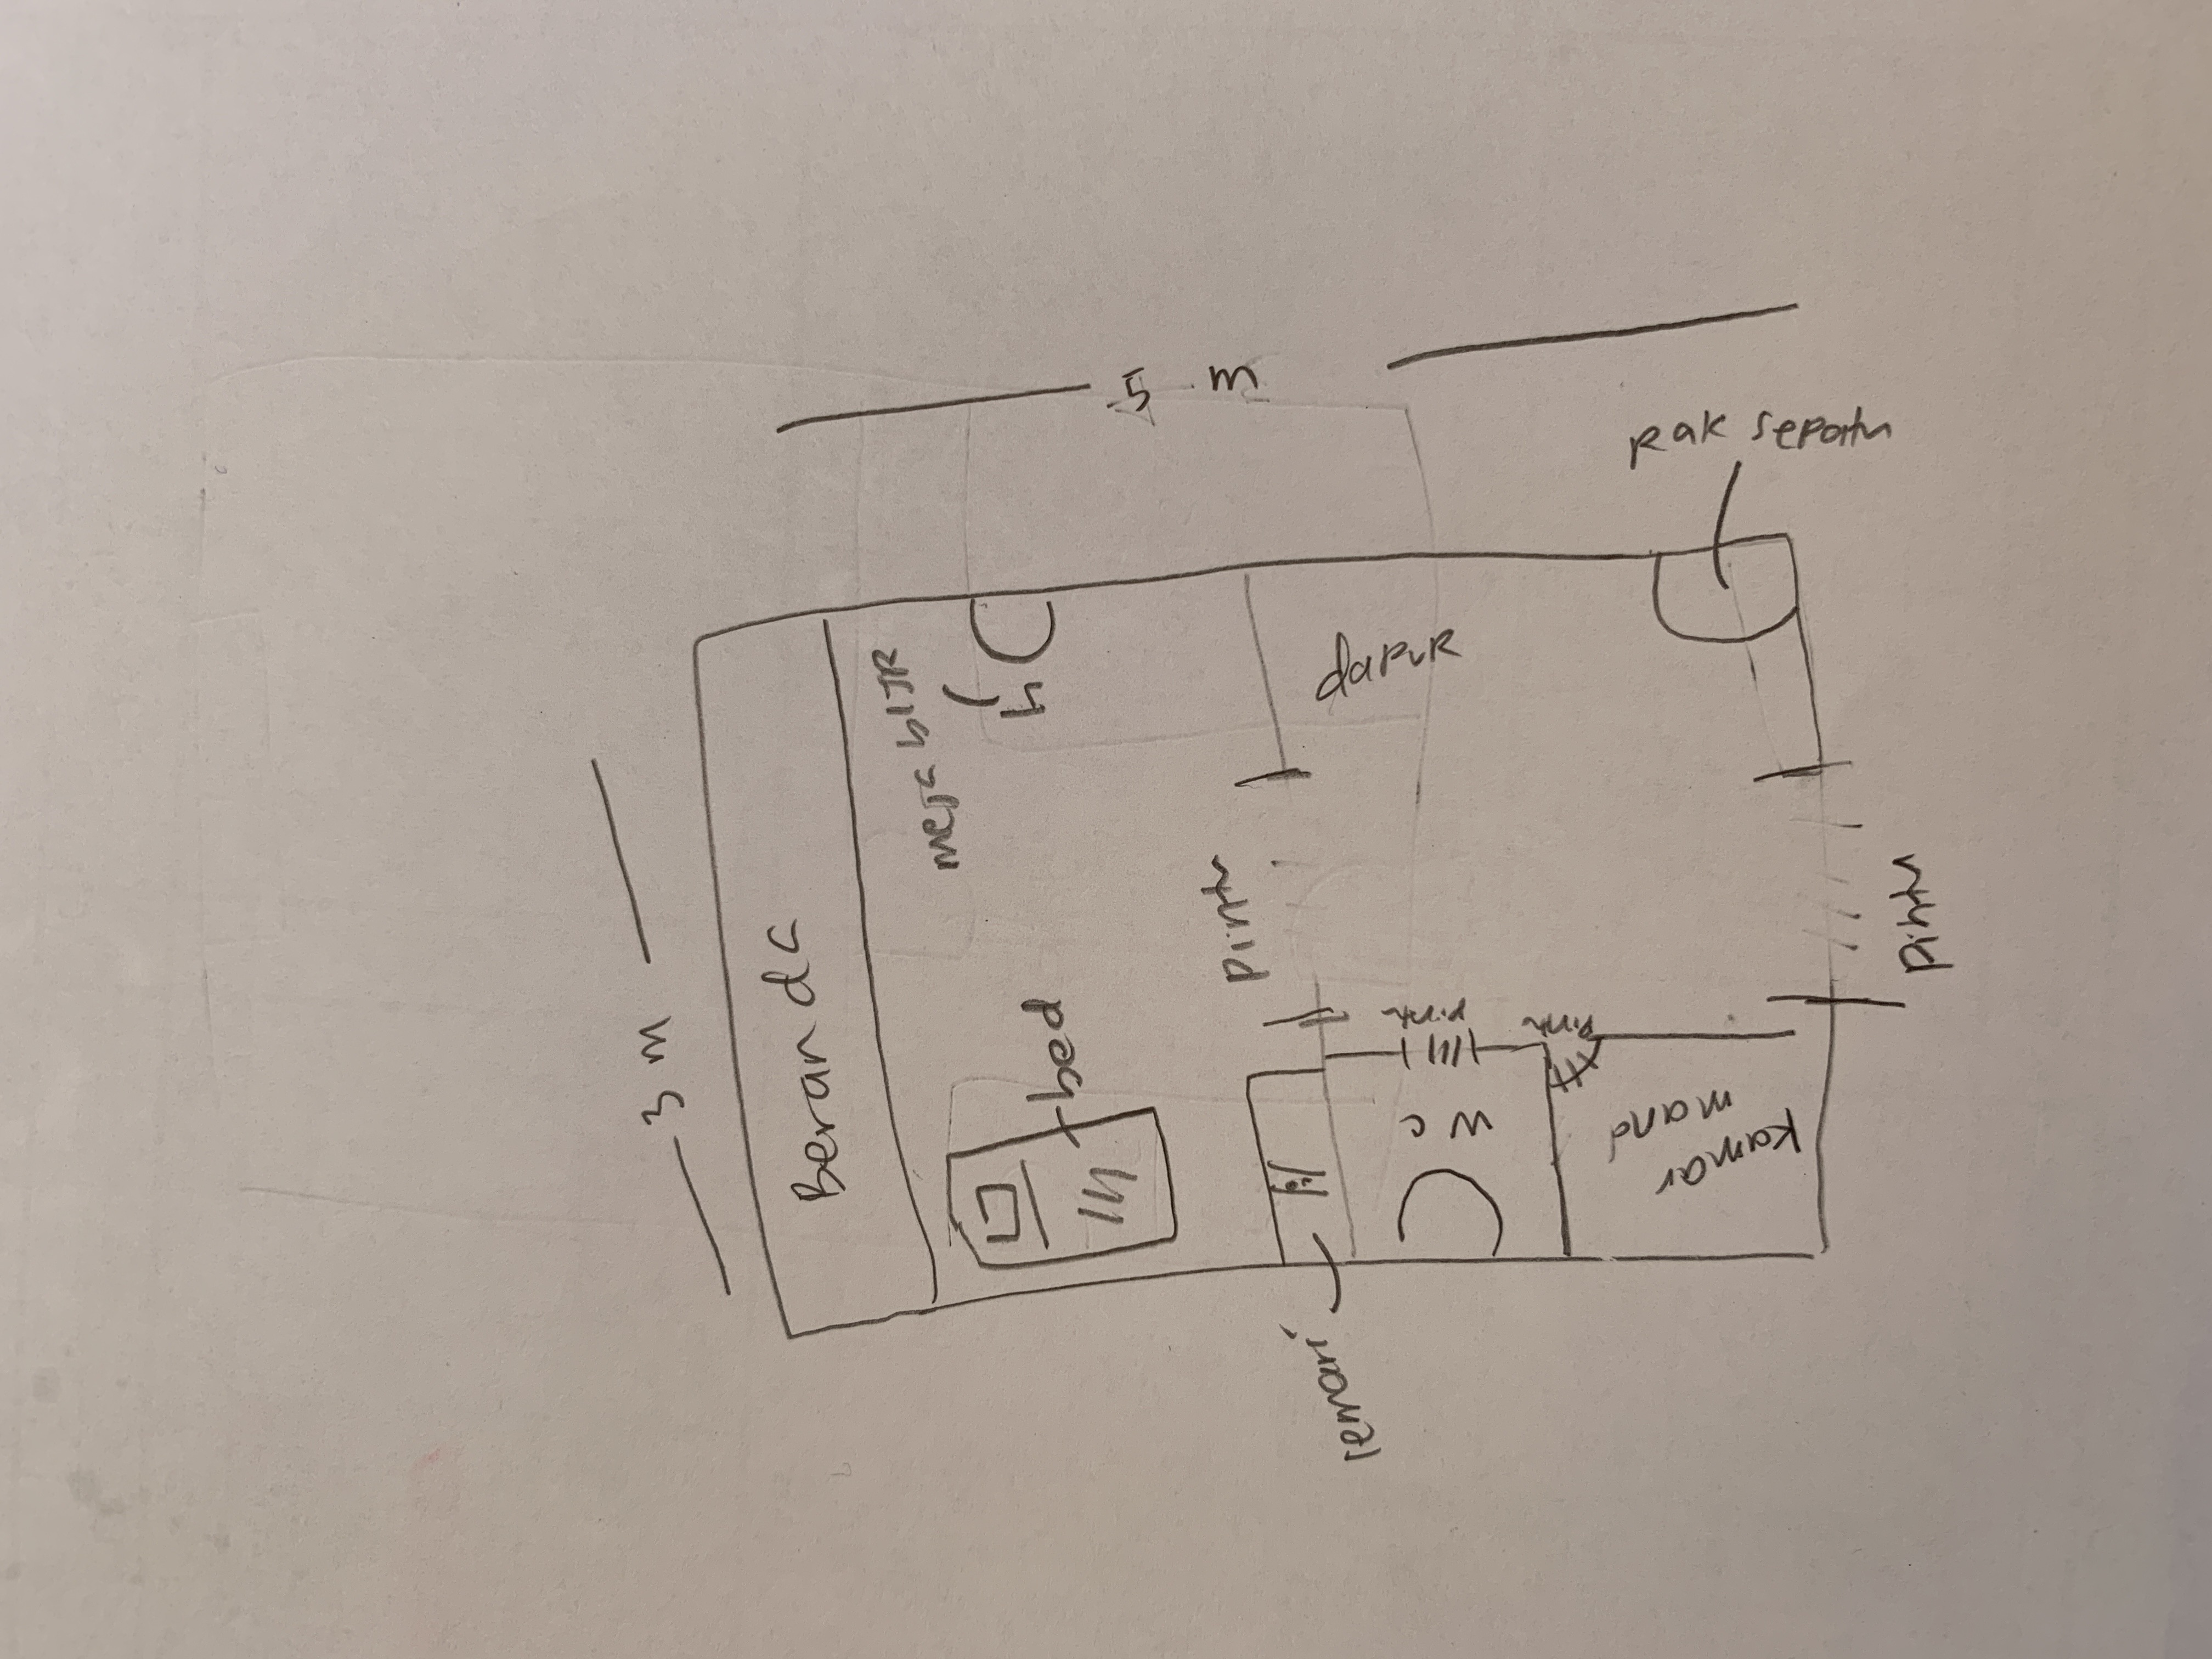 3 m
Beranda
meja blJR
bed
5 m
Pintu
lemari
dapuR
WC
pintu
pintu
Kamar
mand
Rak sepatu
Pintu